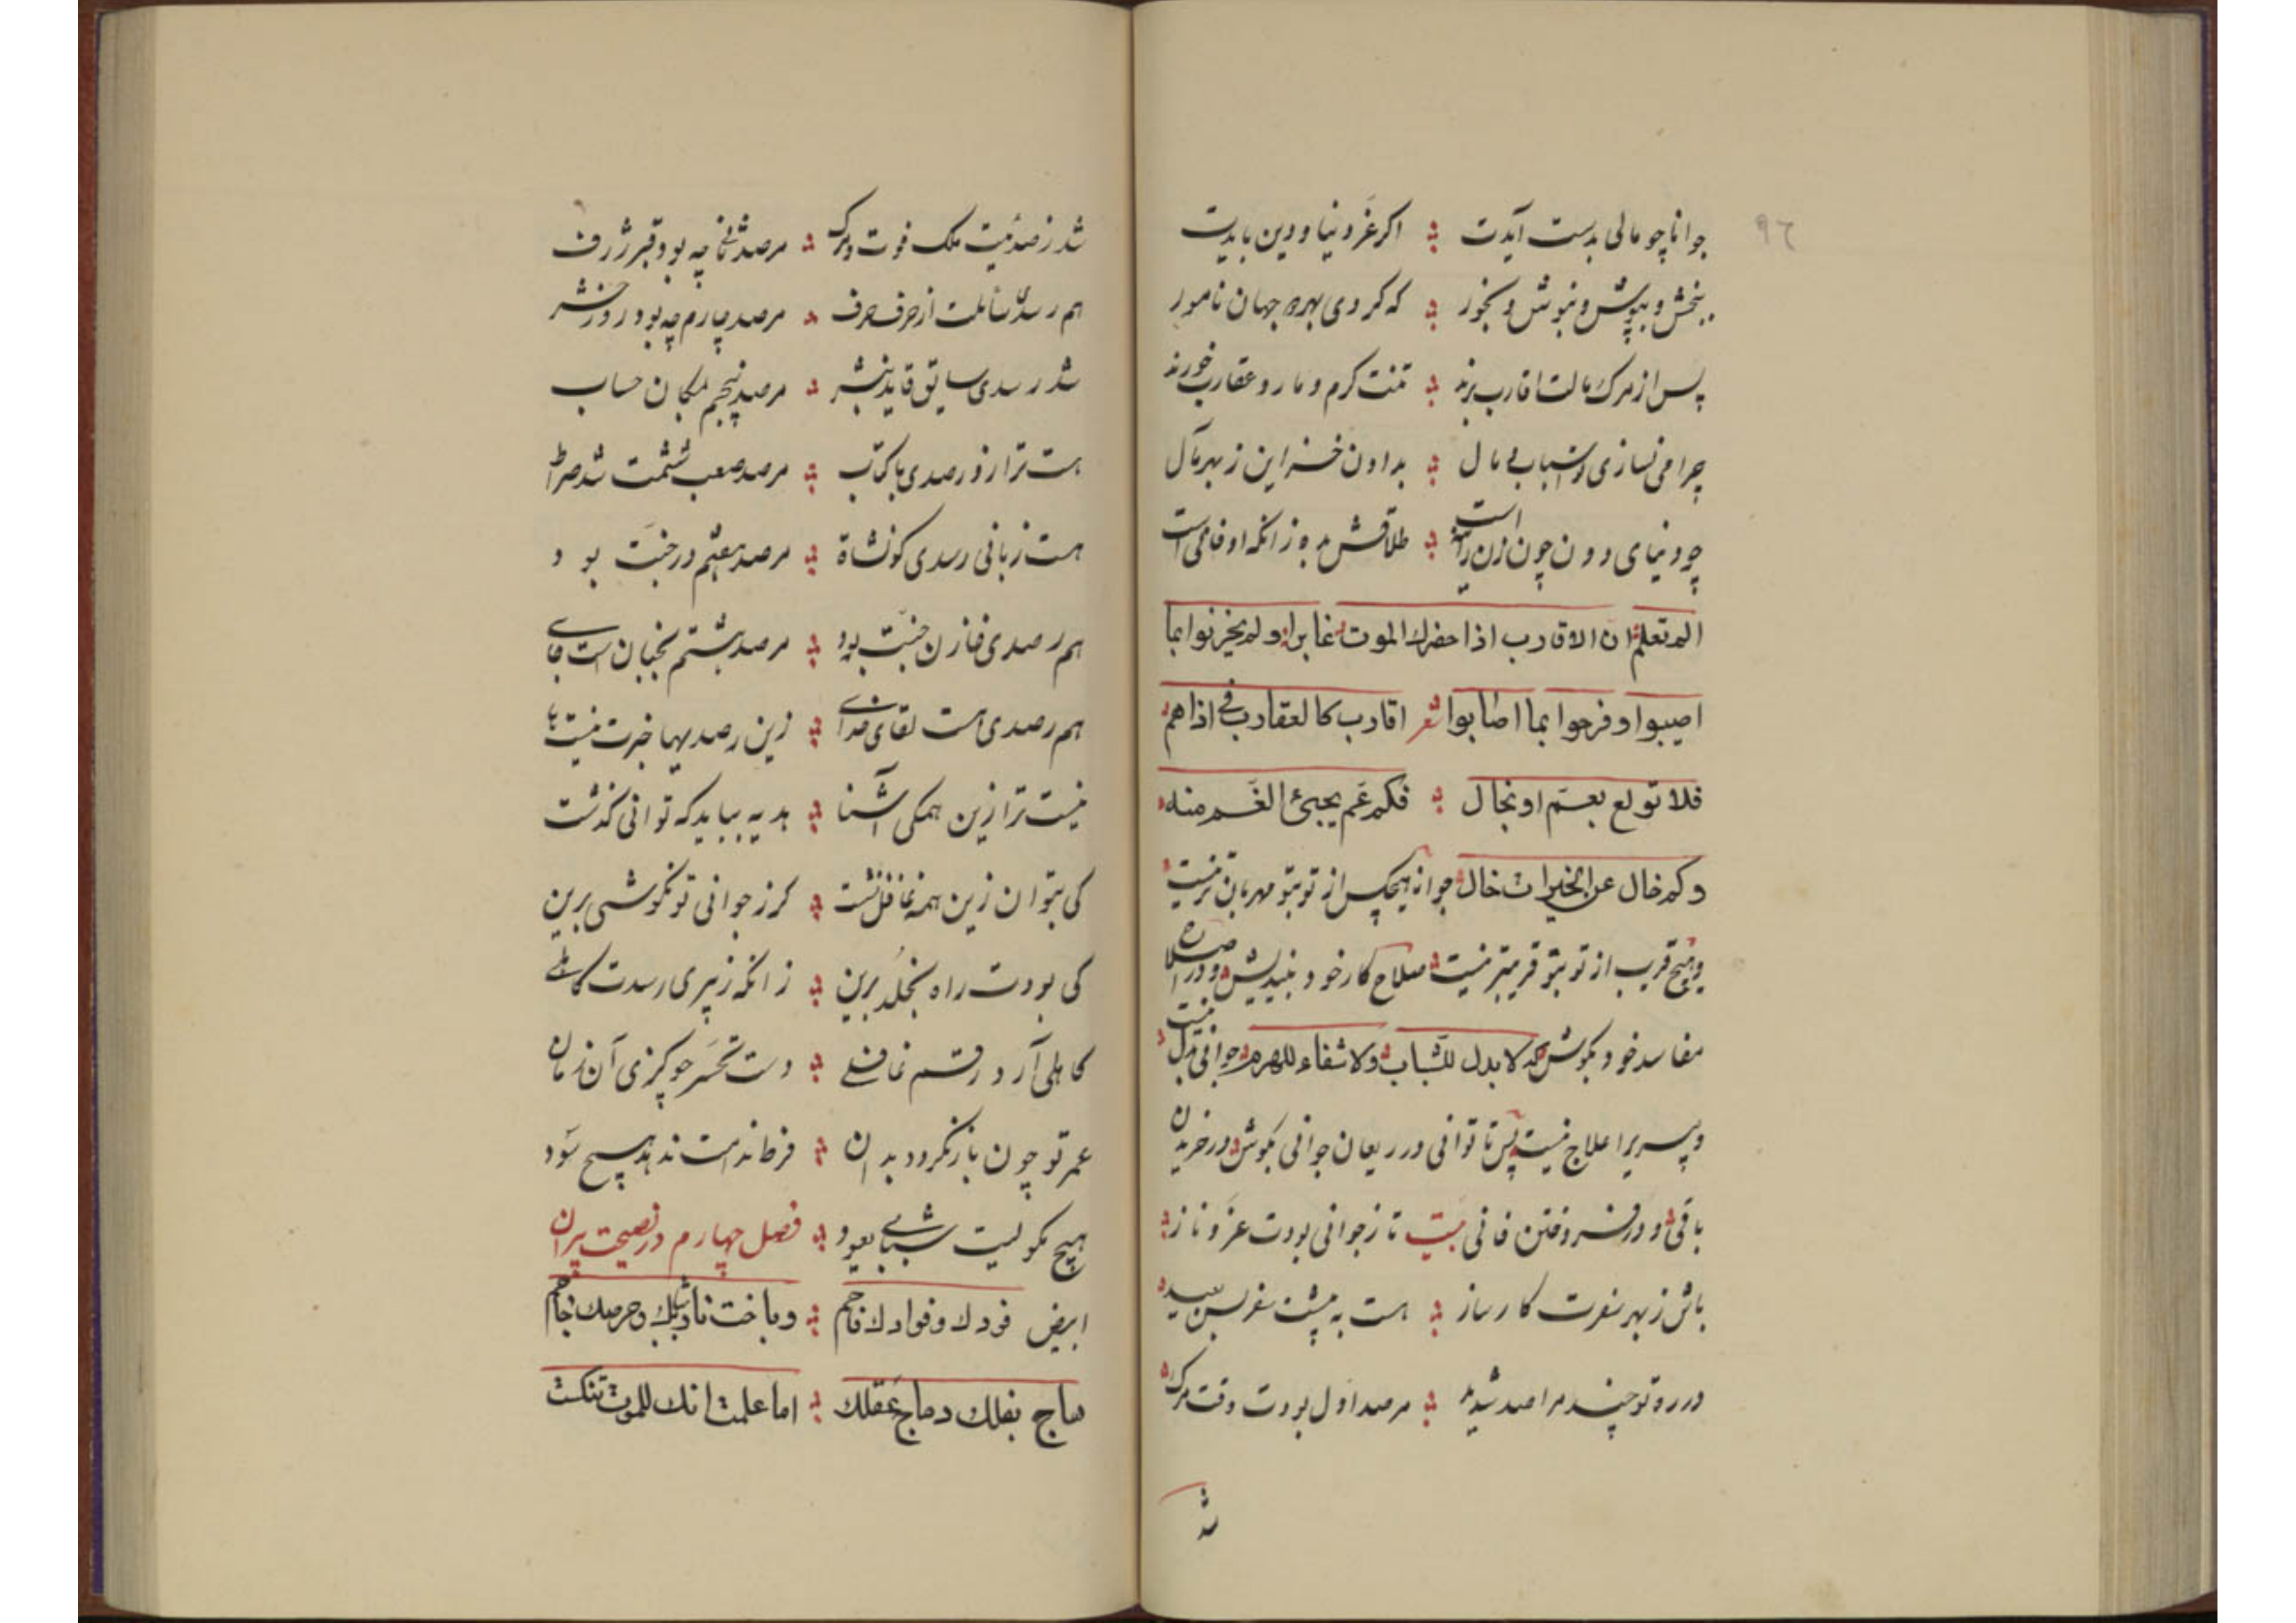 ٩٦
جوانا چو مالی بدست آیدت اکر عز دنیا و دین بایدت
ببخش و بپوش و بنوش و بخور که کردی بهر جهان نامور
پس از مرک مالت اقارب برند تنت کرم و مار و عقارب خورند
چرا می نسازی تو اسباب مال بدادن خزاین ز بهر مآل
چو دنیای دون چون زن زانیه است طلاقش بده زانکه او فانی است
الم تعلم ان الاقارب اذا حضرك الموت غابرا ولم يحزنوا بما
اصيبوا وفرحوا بما اصابوا شعر اقارب كالعقارب فى اذاهم
فلا تولع بعم او بخال فكم عم يجئ الغم منه
وكم خال عن الخيرات خال جوانا هیچکس از تو بتو مهربان تر نیست
و هیچ قریب از تو بتو قریبتر نیست صلاح کار خود بیندیش و در اصلاح
مفاسد خود بکوش که لا بدل للشباب ولا شفاء للهرم جوانی بدل نیست
و پیریرا علاج نیست پس تا توانی در ریعان جوانی بکوش در خریدن
باقی و در فروختن فانی بیت تا ز جوانی بودت عز و ناز
باش ز بهر سفرت کارساز هست به پیشت سفر بس بعید
در ره تو چند مراصد شدید مرصد اول بودت وقت مرک
شد
شد ز صدیت ملک فوت و مرک مرصد ثانی چه بود قبر ژرف
هم رسد سائلت از حرف حرف مرصد چارم چه بود روز حشر
شد رسدی سایق قاید بنشر مرصد پنجم مکان حساب
هست ترازو رصدی با کتاب مرصد صعب ششمت شد صراط
هست زبانی رسدی کو نشاة مرصد هفتم در جنت بود
هم رصدی خازن جنت بود مرصد هشتم بجنان است جای
هم رصدی هست لقای خدای زین رصدیها خبرت نیست یا
نیست ترا زین همکی آشنا بدیه بباید که توانی کذشت
کی بتوان زین همه غافل نشست کر ز جوانی تو نکوشی برین
کی بودت راه بخلد برین زانکه ز پیری رسدت کاهلی
کاهلی آرد رقم غافلی دست تحسر چو کزی آن زمان
عمر تو چون باز نکردد بدان فرط ندامت ندهد هیچ سود
هیچ مکو لیت شبابی یعود فصل چهارم در نصیحت پیران
ابيض فودك وفوادك فاحم وباخت نار شبك وحرصك جاحم
هاج بفلك وماج عقلك اما علمت انك للموت تنكث